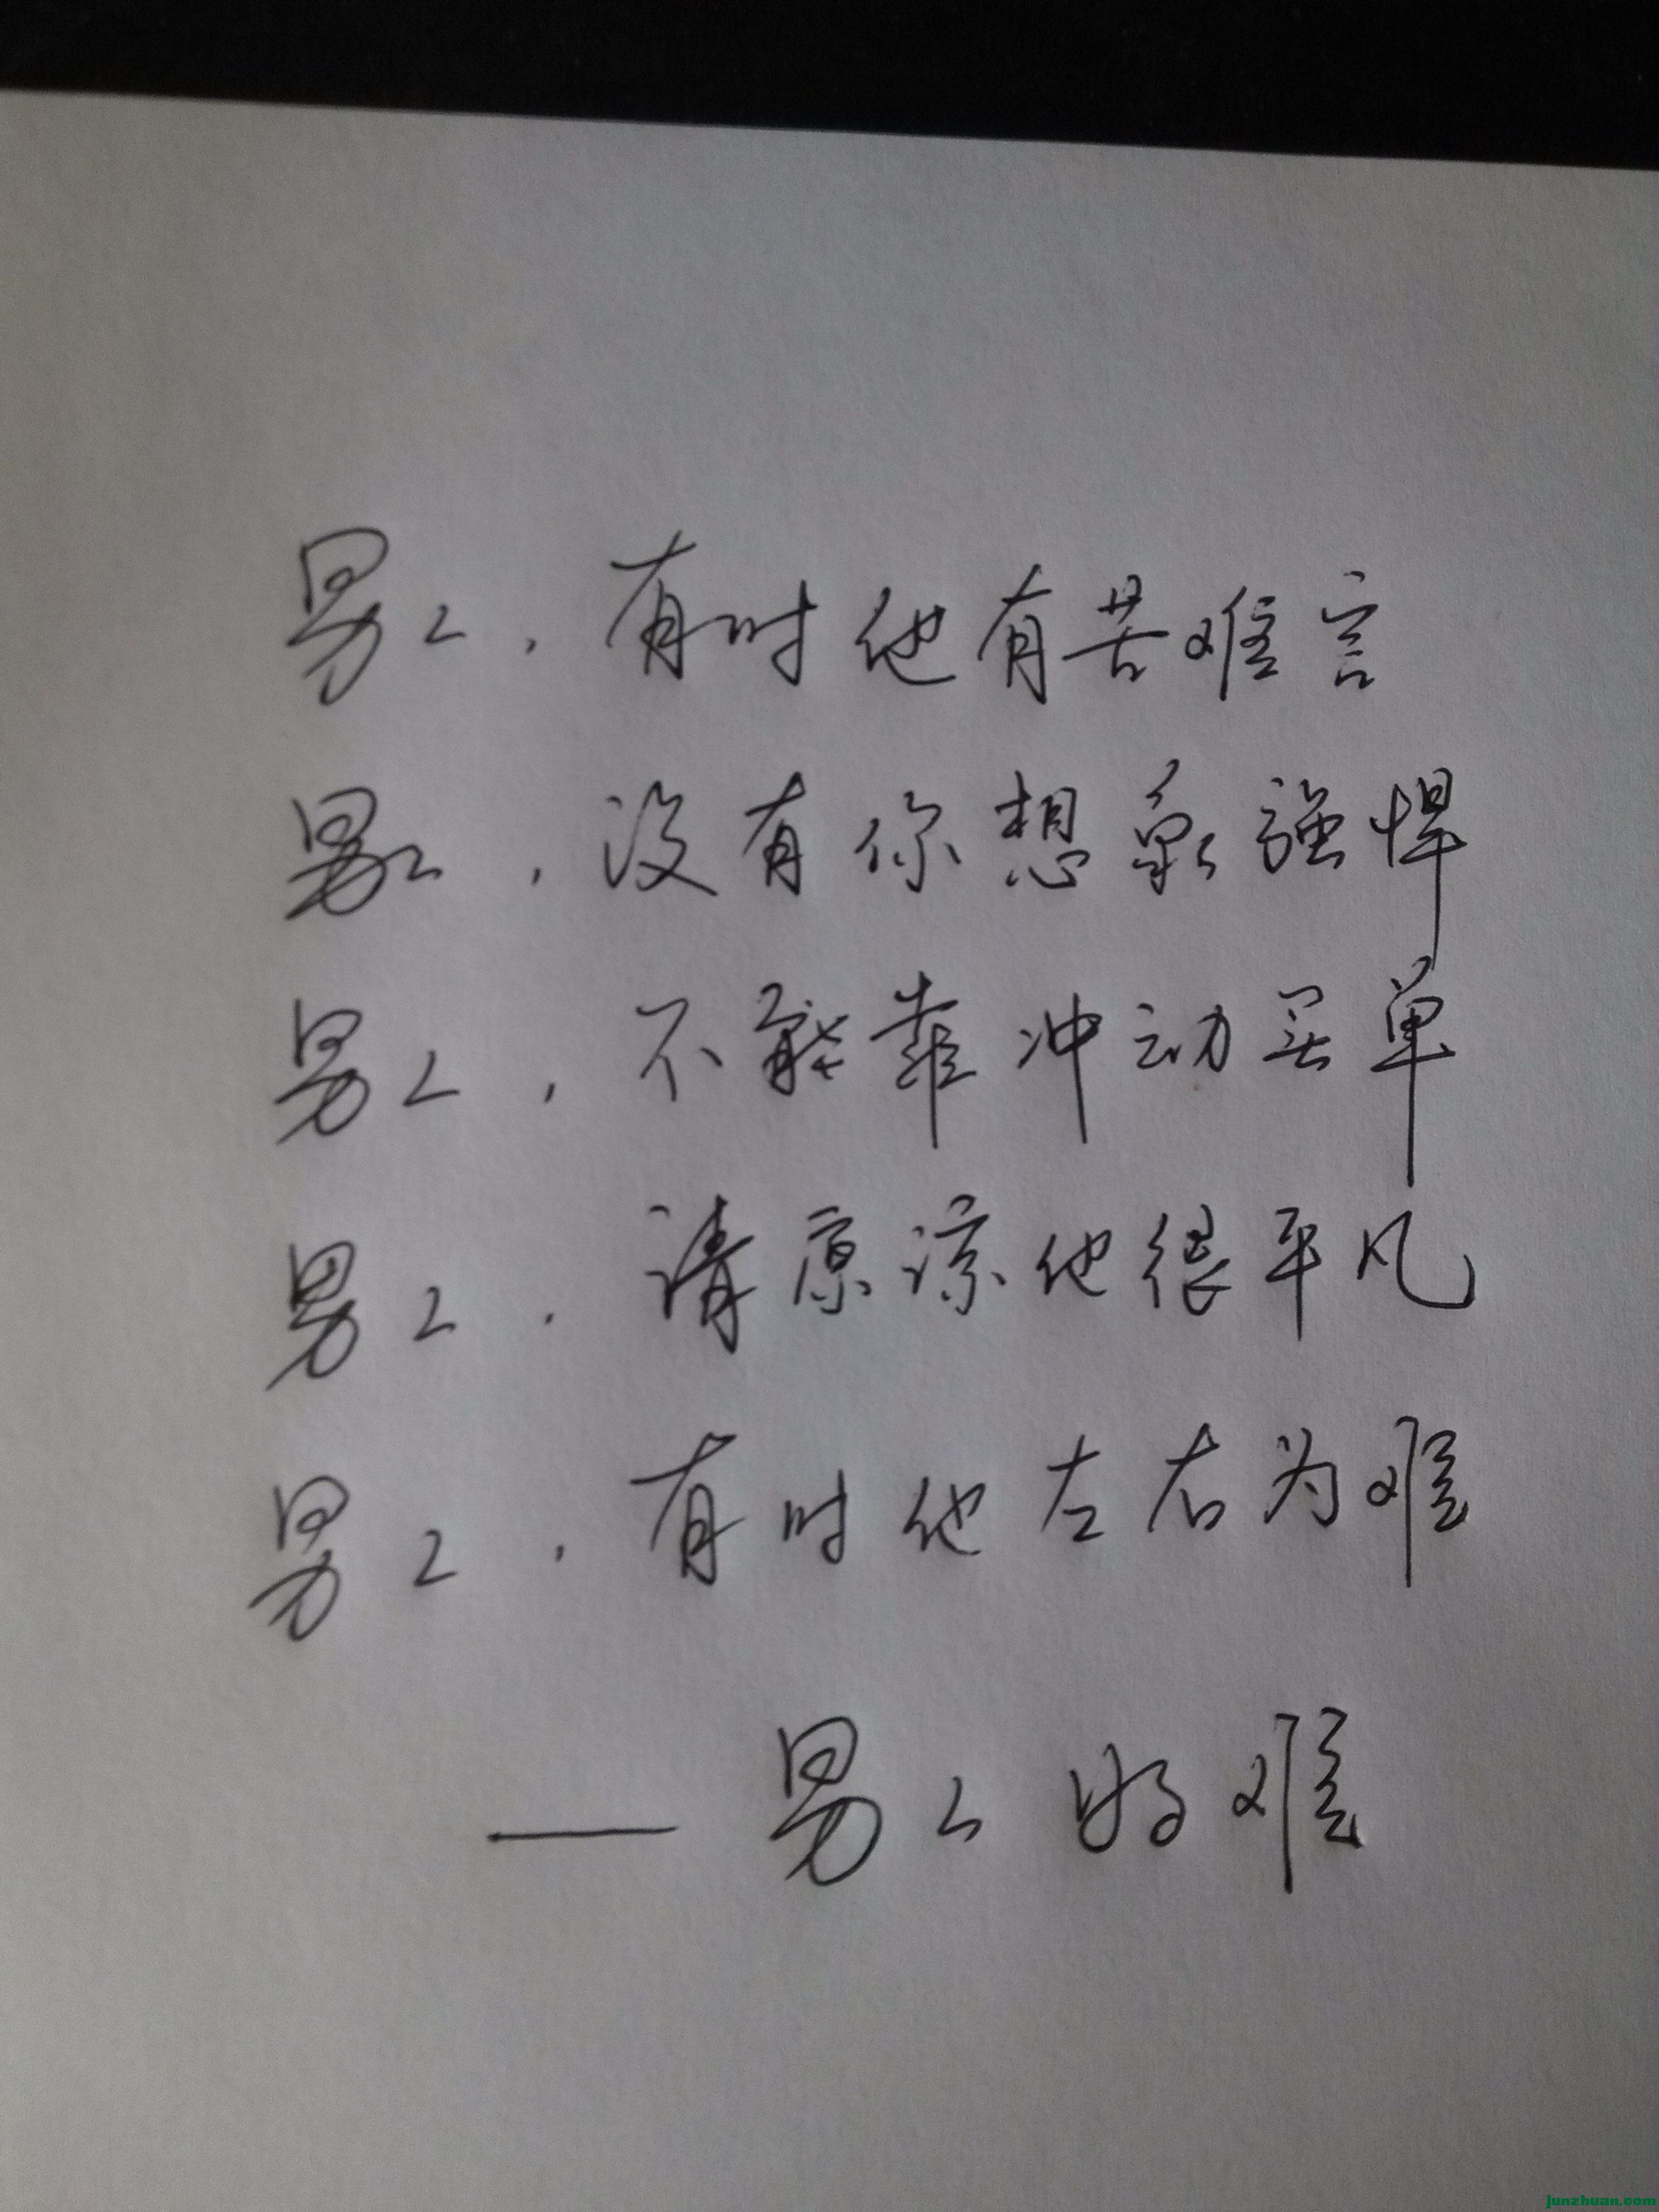 男人，有时他有苦难言
男人，没有你想象强悍
男人，不能靠冲动买单
男人，请原谅他很平凡
男人，有时他左右为难
——男人好难
junzhuan.com